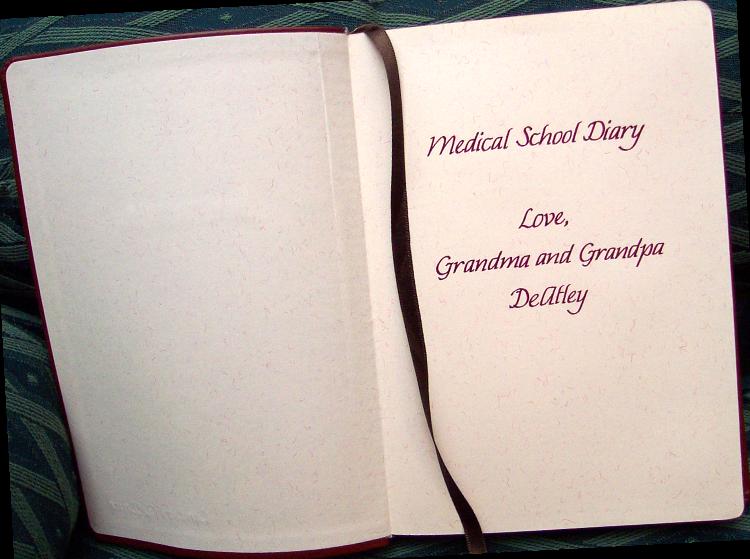 Medical School Diary
Love,
Grandma and Grandpa
DeAtley